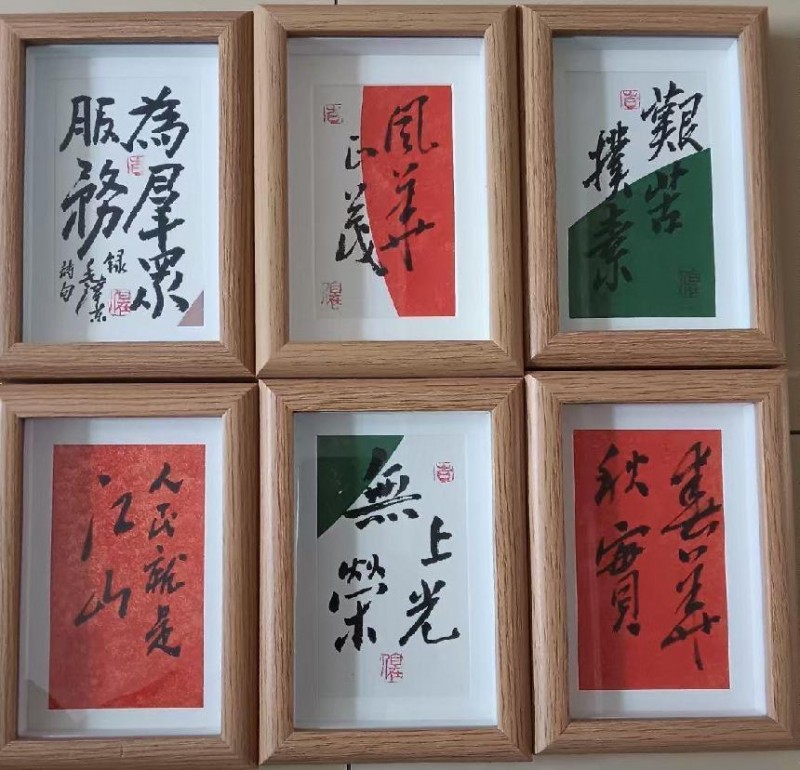 為羣眾
服務
錄
毛澤东
詩句
風華
正茂
艱苦
樸素
人民就是
江山
無
上光
榮
春華
秋實